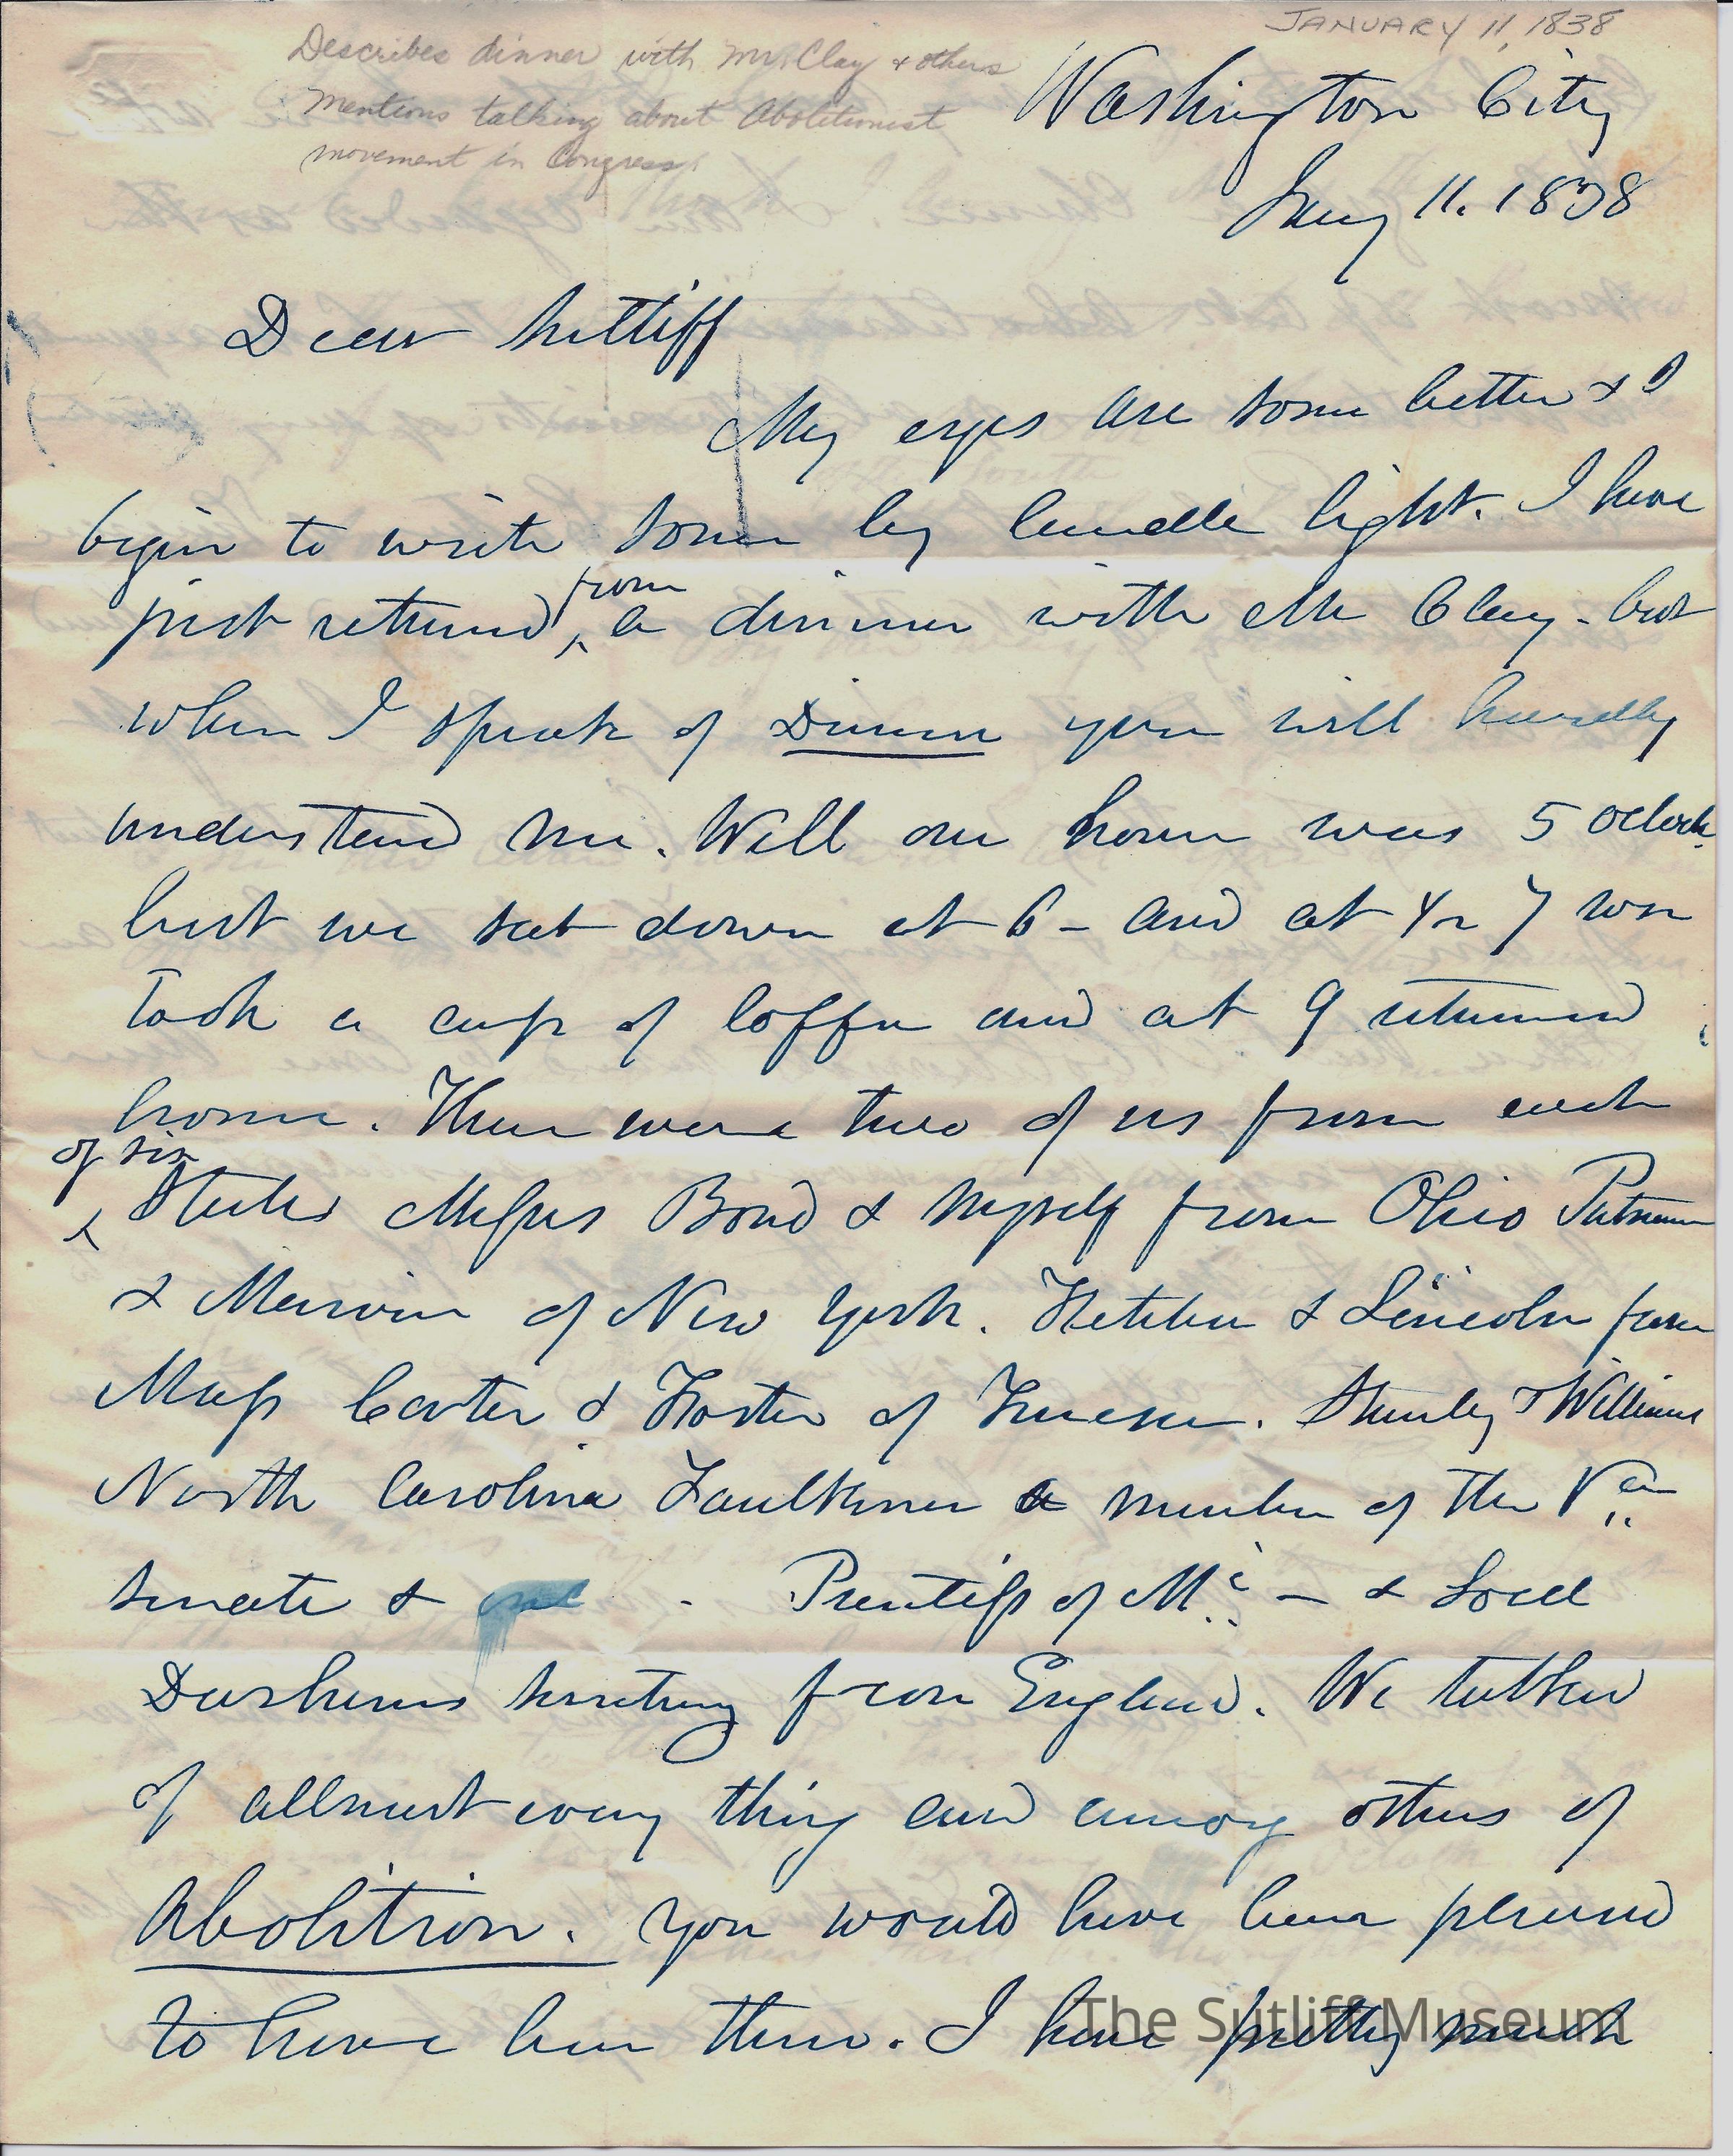 JANUARY 11, 1838
Describes dinner with Mr. Clay & others
Mentions talking about Abolitionist
movement in Congress
Washington City
Jany 11. 1838
Dear Sutliff
My eyes are some better & I
begin to write some by candle light. I have
just returned from a dinner with Mr Clay - but
when I speak of Dinner you will hardly
understand me. Well our hour was 5 oclock.
but we sat down at 6 - and at ½ 7 we
took a cup of Coffee and at 9 returned
home. There were two of us from each
of six
States Messrs Bond & myself from Ohio Putnam
& Marvin of New York. Fletcher & Lincoln from
Mass Carter & Foster of Stanley & Williams
North Carolina Faulkner a member of the Va
senate & Prentiss of Mi - & Lord
secretary from England. We talked
of allmost every thing and among others of
Abolition. You would have been pleased
to have been there. I have pretty much
The Sutliff Museum